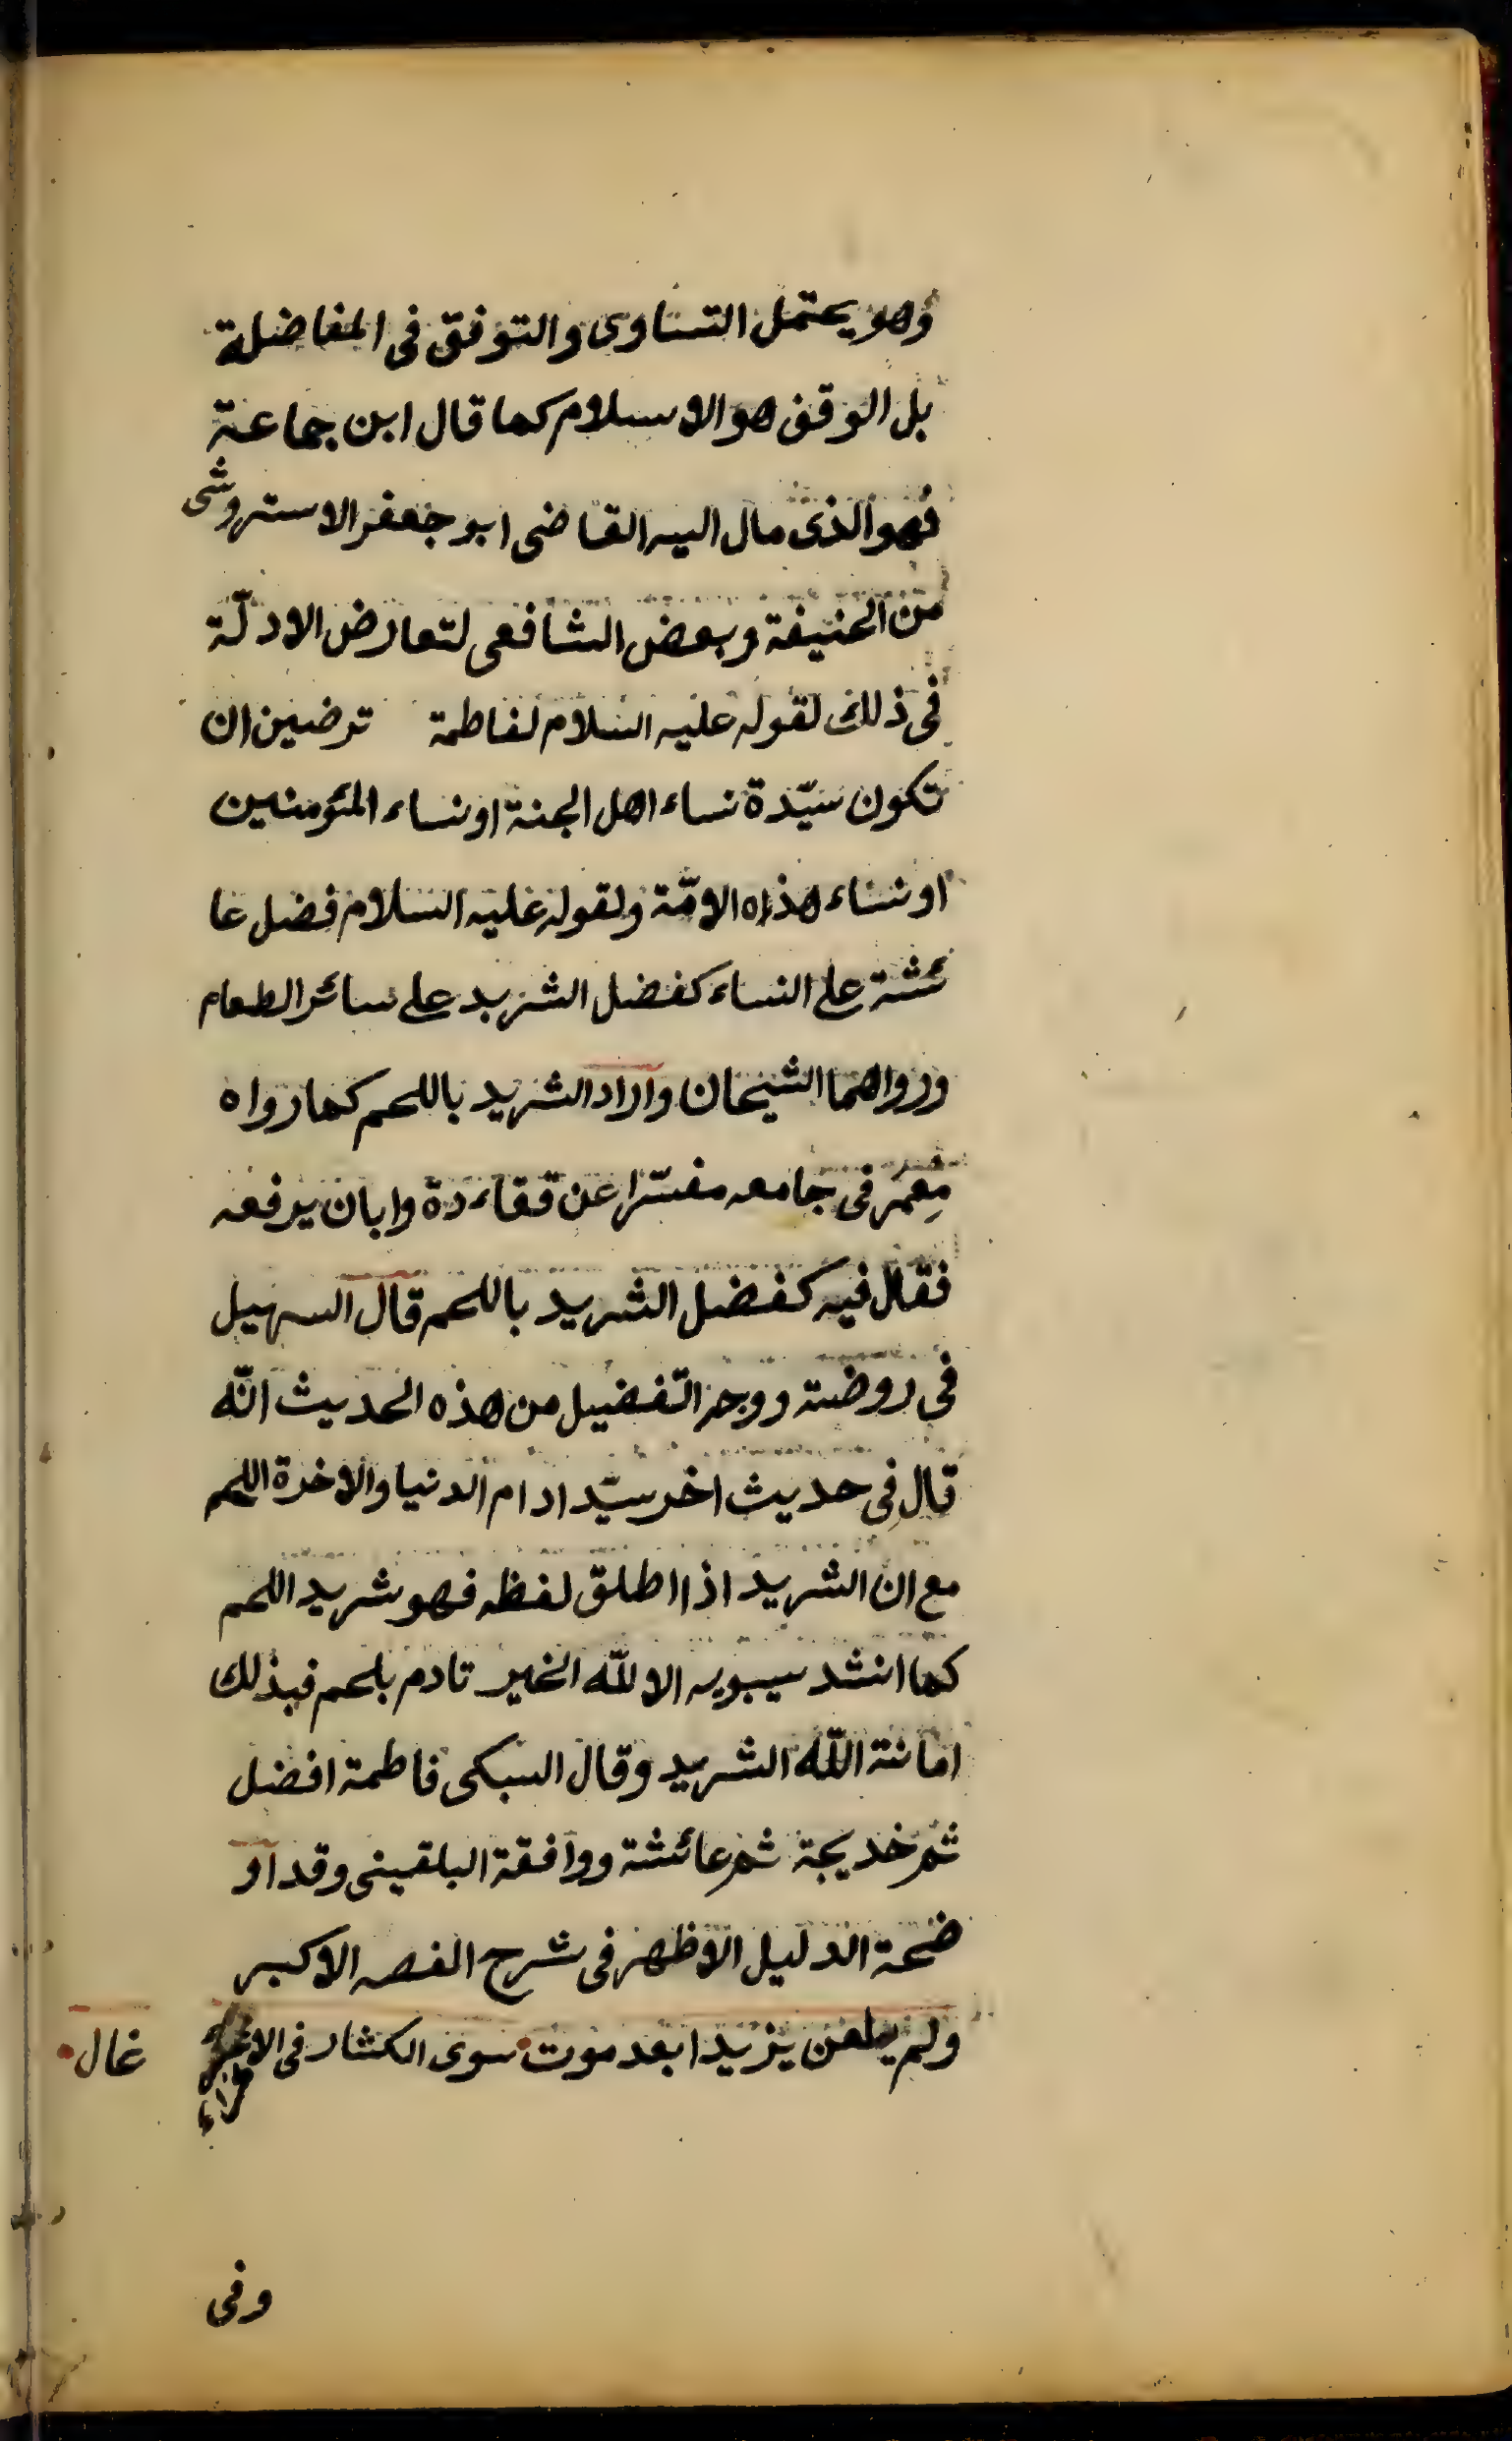 وهو يحتمل التساوى والتوفق فى المفاضلة
بل الوقف هو الاسلام كما قال ابن جماعة
فهو الذى مال اليه القاضى ابو جعفر الاستروشى
من الحنيفة وبعض الشافعى لتعارض الادلّة
فى ذلك لقوله عليه السلام لفاطمة ترضين ان
تكون سيّدة نساء اهل الجنة او نساء المئومنين
او نساء هذاه الامّة ولقوله عليه السلام فضل عا
ئشة على النساء كفضل الشريد على سائر الطعام
ورواهما الشيخان واراد الشريد باللحم كما رواه
معمر فى جامعه مفسّرا عن وابان يرفعه
فقال فيه كفضل الشريد باللحم قال السهيل
فى روضة ووجه التفضيل من هذه الحديث انّه
قال فى حديث اخر سيّد ادام الدنيا والاخرة اللحم
مع ان الشريد اذا اطلق لفظه فهو شريد اللحم
كما انشد سيبويه الا للّه الخير تادم بلحم فبذلك
امانتة اللّه الشريد وقال السبكى فاطمة افضل
ثم خديجة ثم عائشة ووافقة البلقينى وقد او
ضحة الدليل الاظهر فى شرح الفصه الاكبر
ولم يلعن يزيدا بعد موت سوى الكثار فى الاغراء غال
وفى